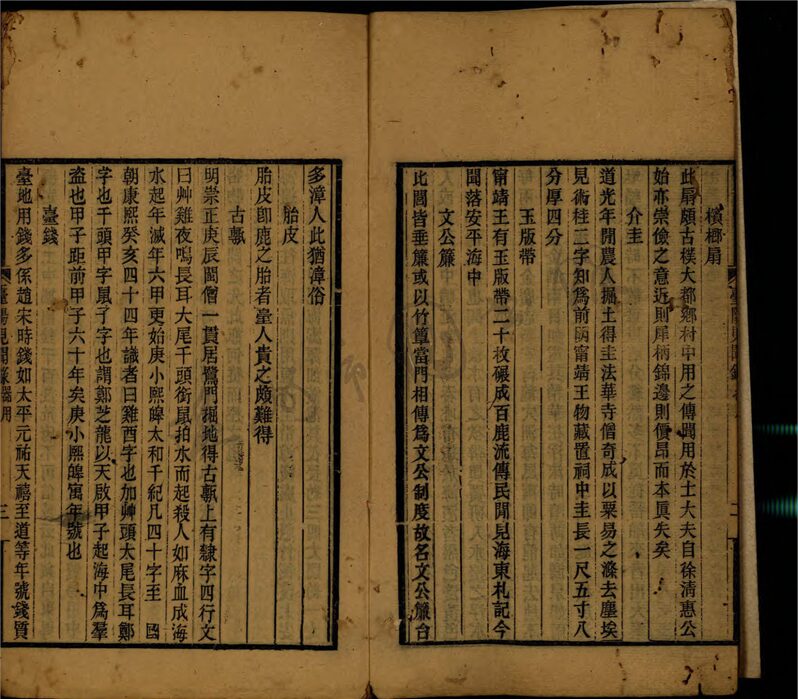 檳榔扇
此扇頗古樸大都鄉村中用之傳聞用於士大夫自徐清惠公
始亦崇儉之意近則犀柄錦邊則價昂而本真失矣
介圭
道光年間農人掘土得圭法華寺僧奇成以粟易之滌去塵埃
見術桂二字知為前明甯靖王物藏置祠中圭長一尺五寸八
分厚四分
玉版帶
甯靖王有玉版帶二十枚碾成百鹿流傳民間見海東札記今
聞落安平海中
文公簾
比閭皆垂簾或以竹簟當門相傳為文公制度故名文公簾台
多漳人此猶漳俗
胎皮
胎皮卽鹿之胎者臺人貴之頗難得
古甎
明崇正庚辰閩僧一貫居鷺門掘地得古甎上有隸字四行文
曰艸雞夜鳴長耳大尾千頭銜鼠拍水而起殺人如麻血成海
水起年滅年六甲更始庚小熙皞太和千紀凡四十字至 國
朝康熙癸亥四十四年識者曰雞酉字也加艸頭大尾長耳鄭
字也千頭甲字鼠子字也謂鄭芝龍以天啟甲子起海中為羣
盜也甲子距前甲子六十年矣庚小熙皞寓年號也
臺錢
臺地用錢多係趙宋時錢如太平元祐天禧至道等年號錢質
臺陽見聞錄 器用 三